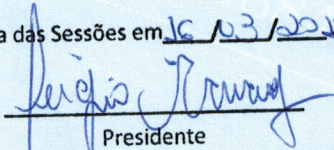 a das Sessões em 16/03/202
Sérgio
Presidente